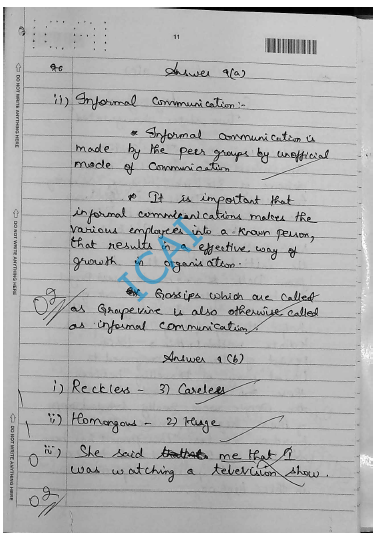 11
Answer 9(a)
ii) Informal Communication:-
* Informal communication is
made by the peer groups by unofficial
mode of communication
* It is important that
informal communications makes the
various employees into a known person,
that results in a effective way of
growth in organisation.
Gossips which are called
as Grapevine is also otherwise called
as informal communication.
02
Answer 9(b)
i) Reckless - 3) Careless
1
ii) Homongous - 2) Huge
1
iii) She said me that I
was watching a television show.
0
02
ICAI
DO NOT WRITE ANYTHING HERE
DO NOT WRITE ANYTHING HERE
DO NOT WRITE ANYTHING HERE